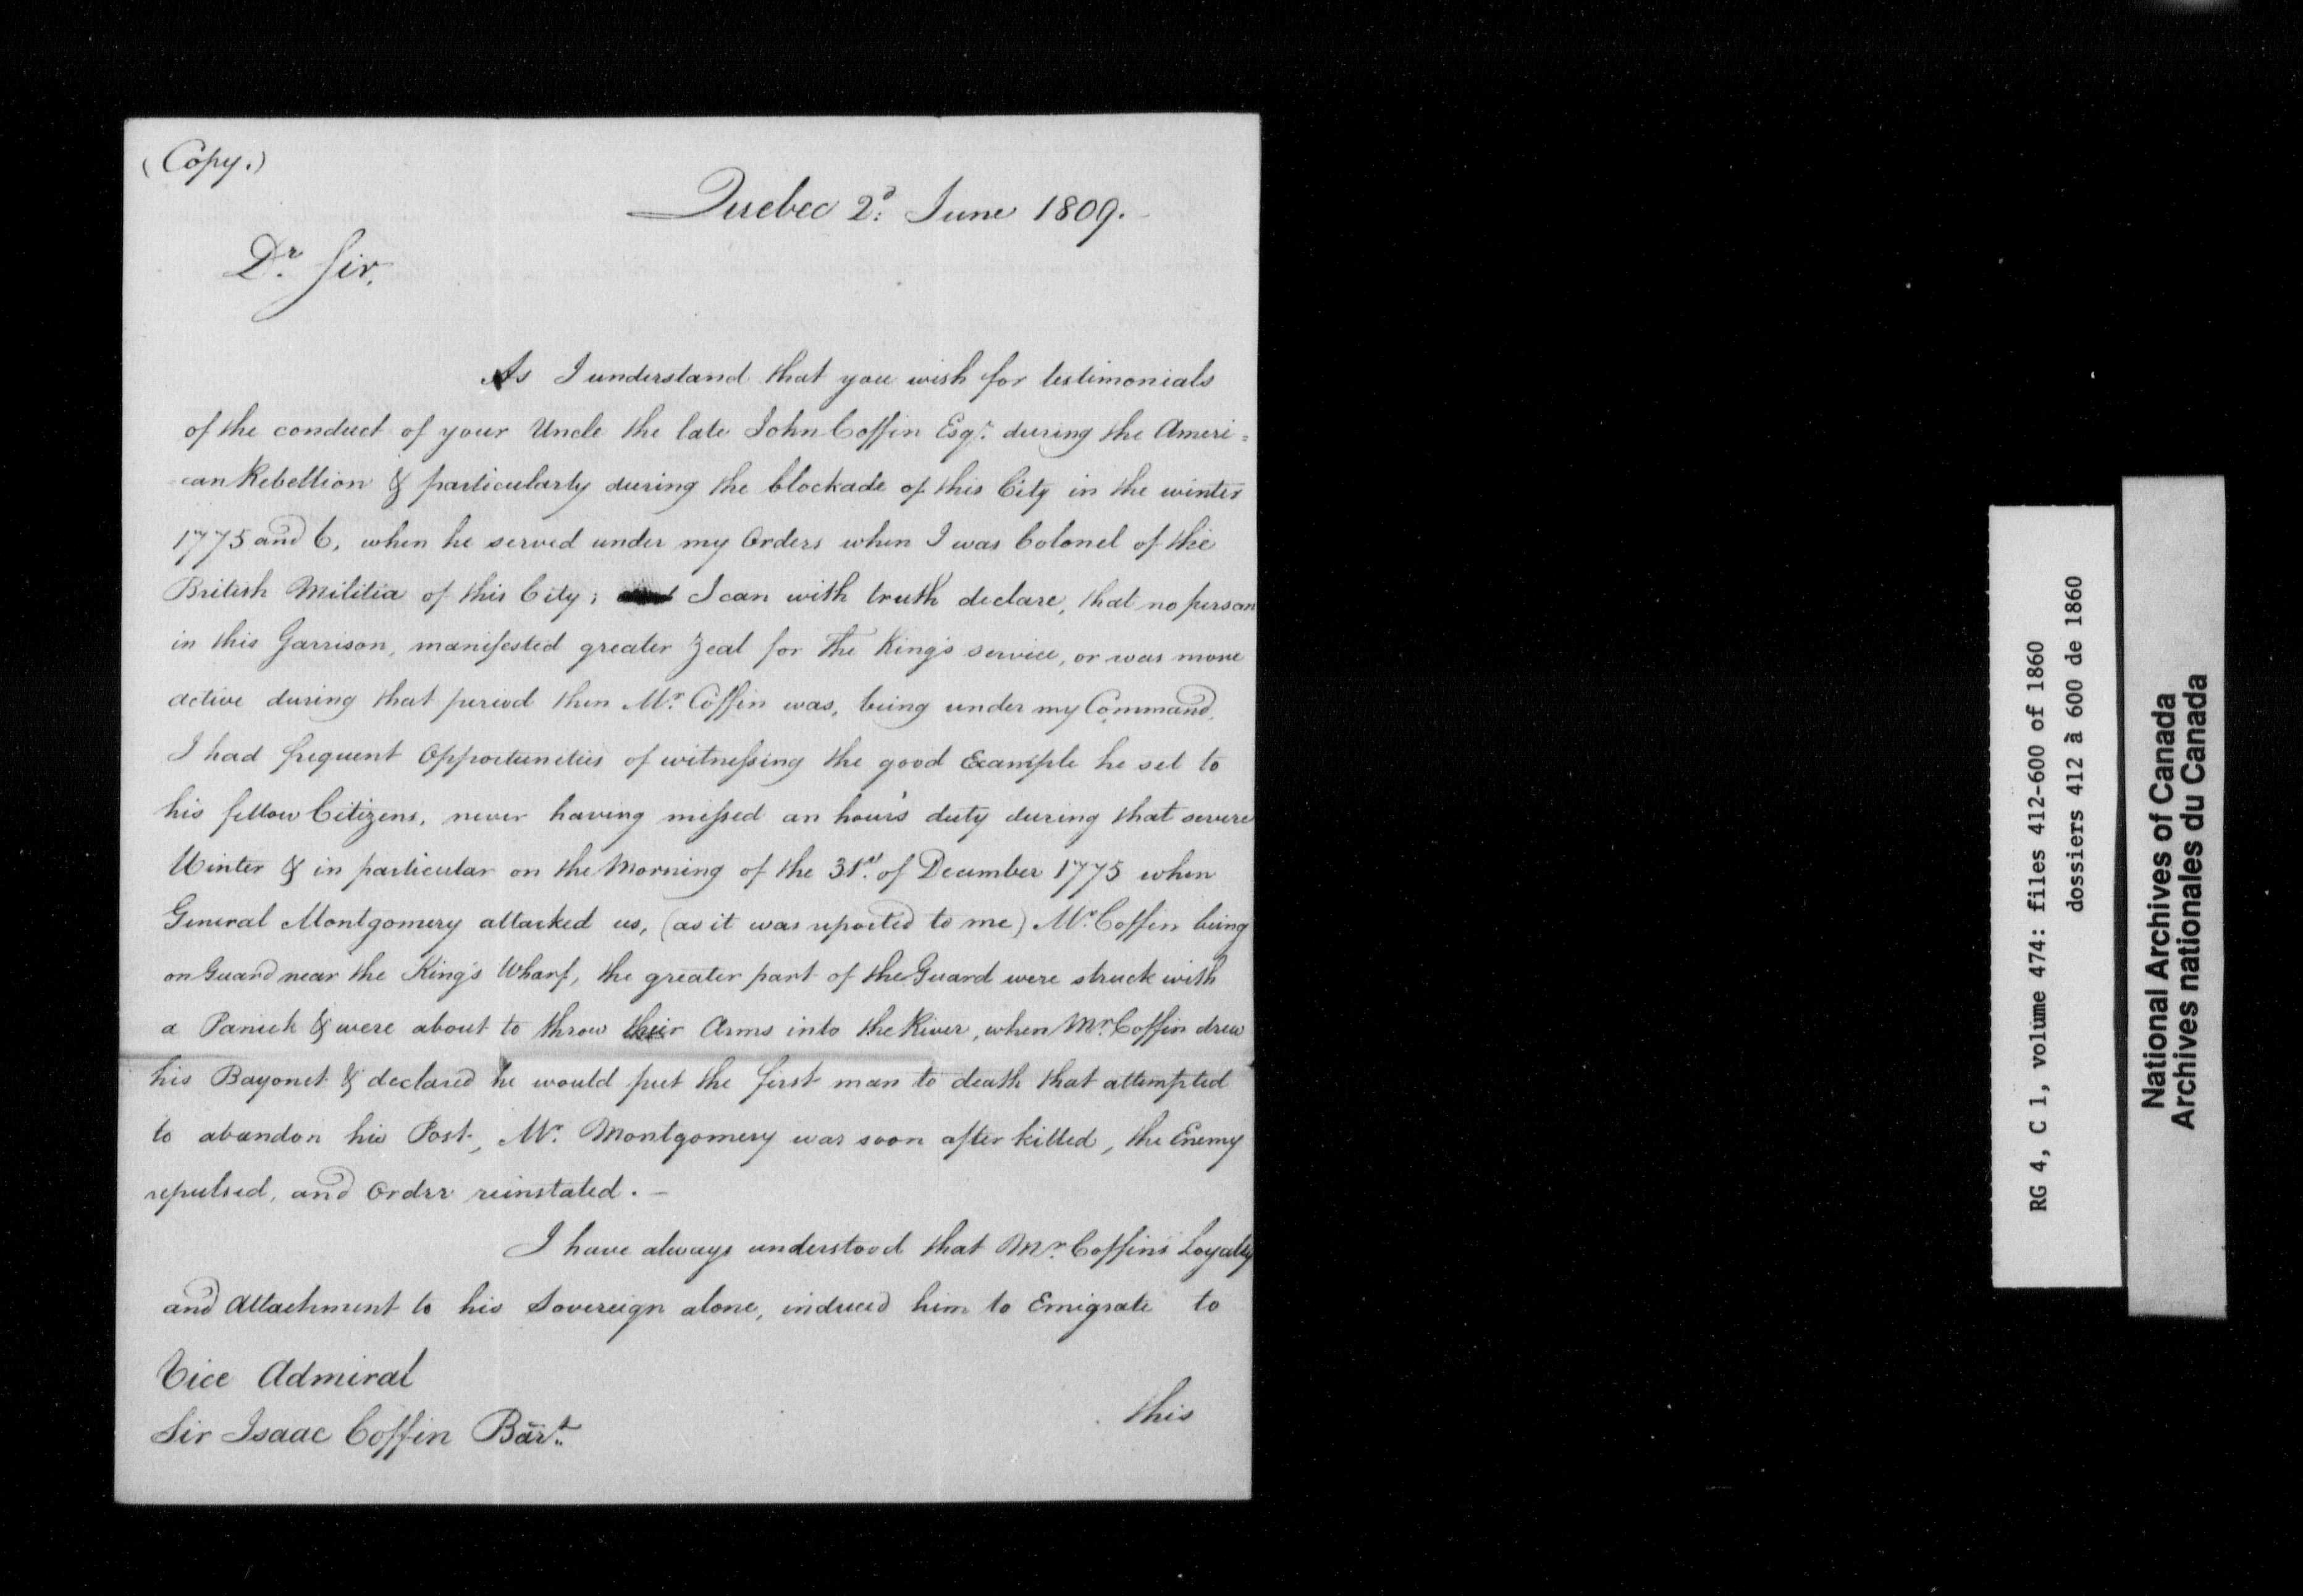 (Copy.)
Quebec 2d. June 1809.
Dr. Sir,
As I understand that you wish for testimonials
of the conduct of your Uncle the late John Coffin Esqr. during the Ameri=
can Rebellion & particularly during the blockade of this City in the winter
1775 and 6, when he served under my Orders when I was Colonel of the
British Militia of this City; I can with truth declare, that no person
in this Garrison, manifested greater Zeal for the King's service, or was more
active during that period then Mr. Coffin was, being under my Command,
I had frequent Opportunities of witnessing the good Example he set to
his fellow Citizens, never having missed an hour's duty during that severe
Winter & in particular on the Morning of the 31st. of December 1775 when
General Montgomery attacked us, (as it was reported to me) Mr. Coffin being
on Guard near the King's Wharf, the greater part of the Guard were struck with
a Panick & were about to throw their Arms into the River, when Mr. Coffin drew
his Bayonet & declared he would put the first man to death that attempted
to abandon his Post, Mr. Montgomery was soon after killed, the Enemy
repulsed, and Order reinstated. -
I have always understood that Mr. Coffin's Loyalty
and Attachment to his Sovereign alone, induced him to Emigrate to
this
Vice Admiral
Sir Isaac Coffin Bart.
RG 4, C 1, volume 474: files 412-600 of 1860
dossiers 412 à 600 de 1860
National Archives of Canada
Archives nationales du Canada